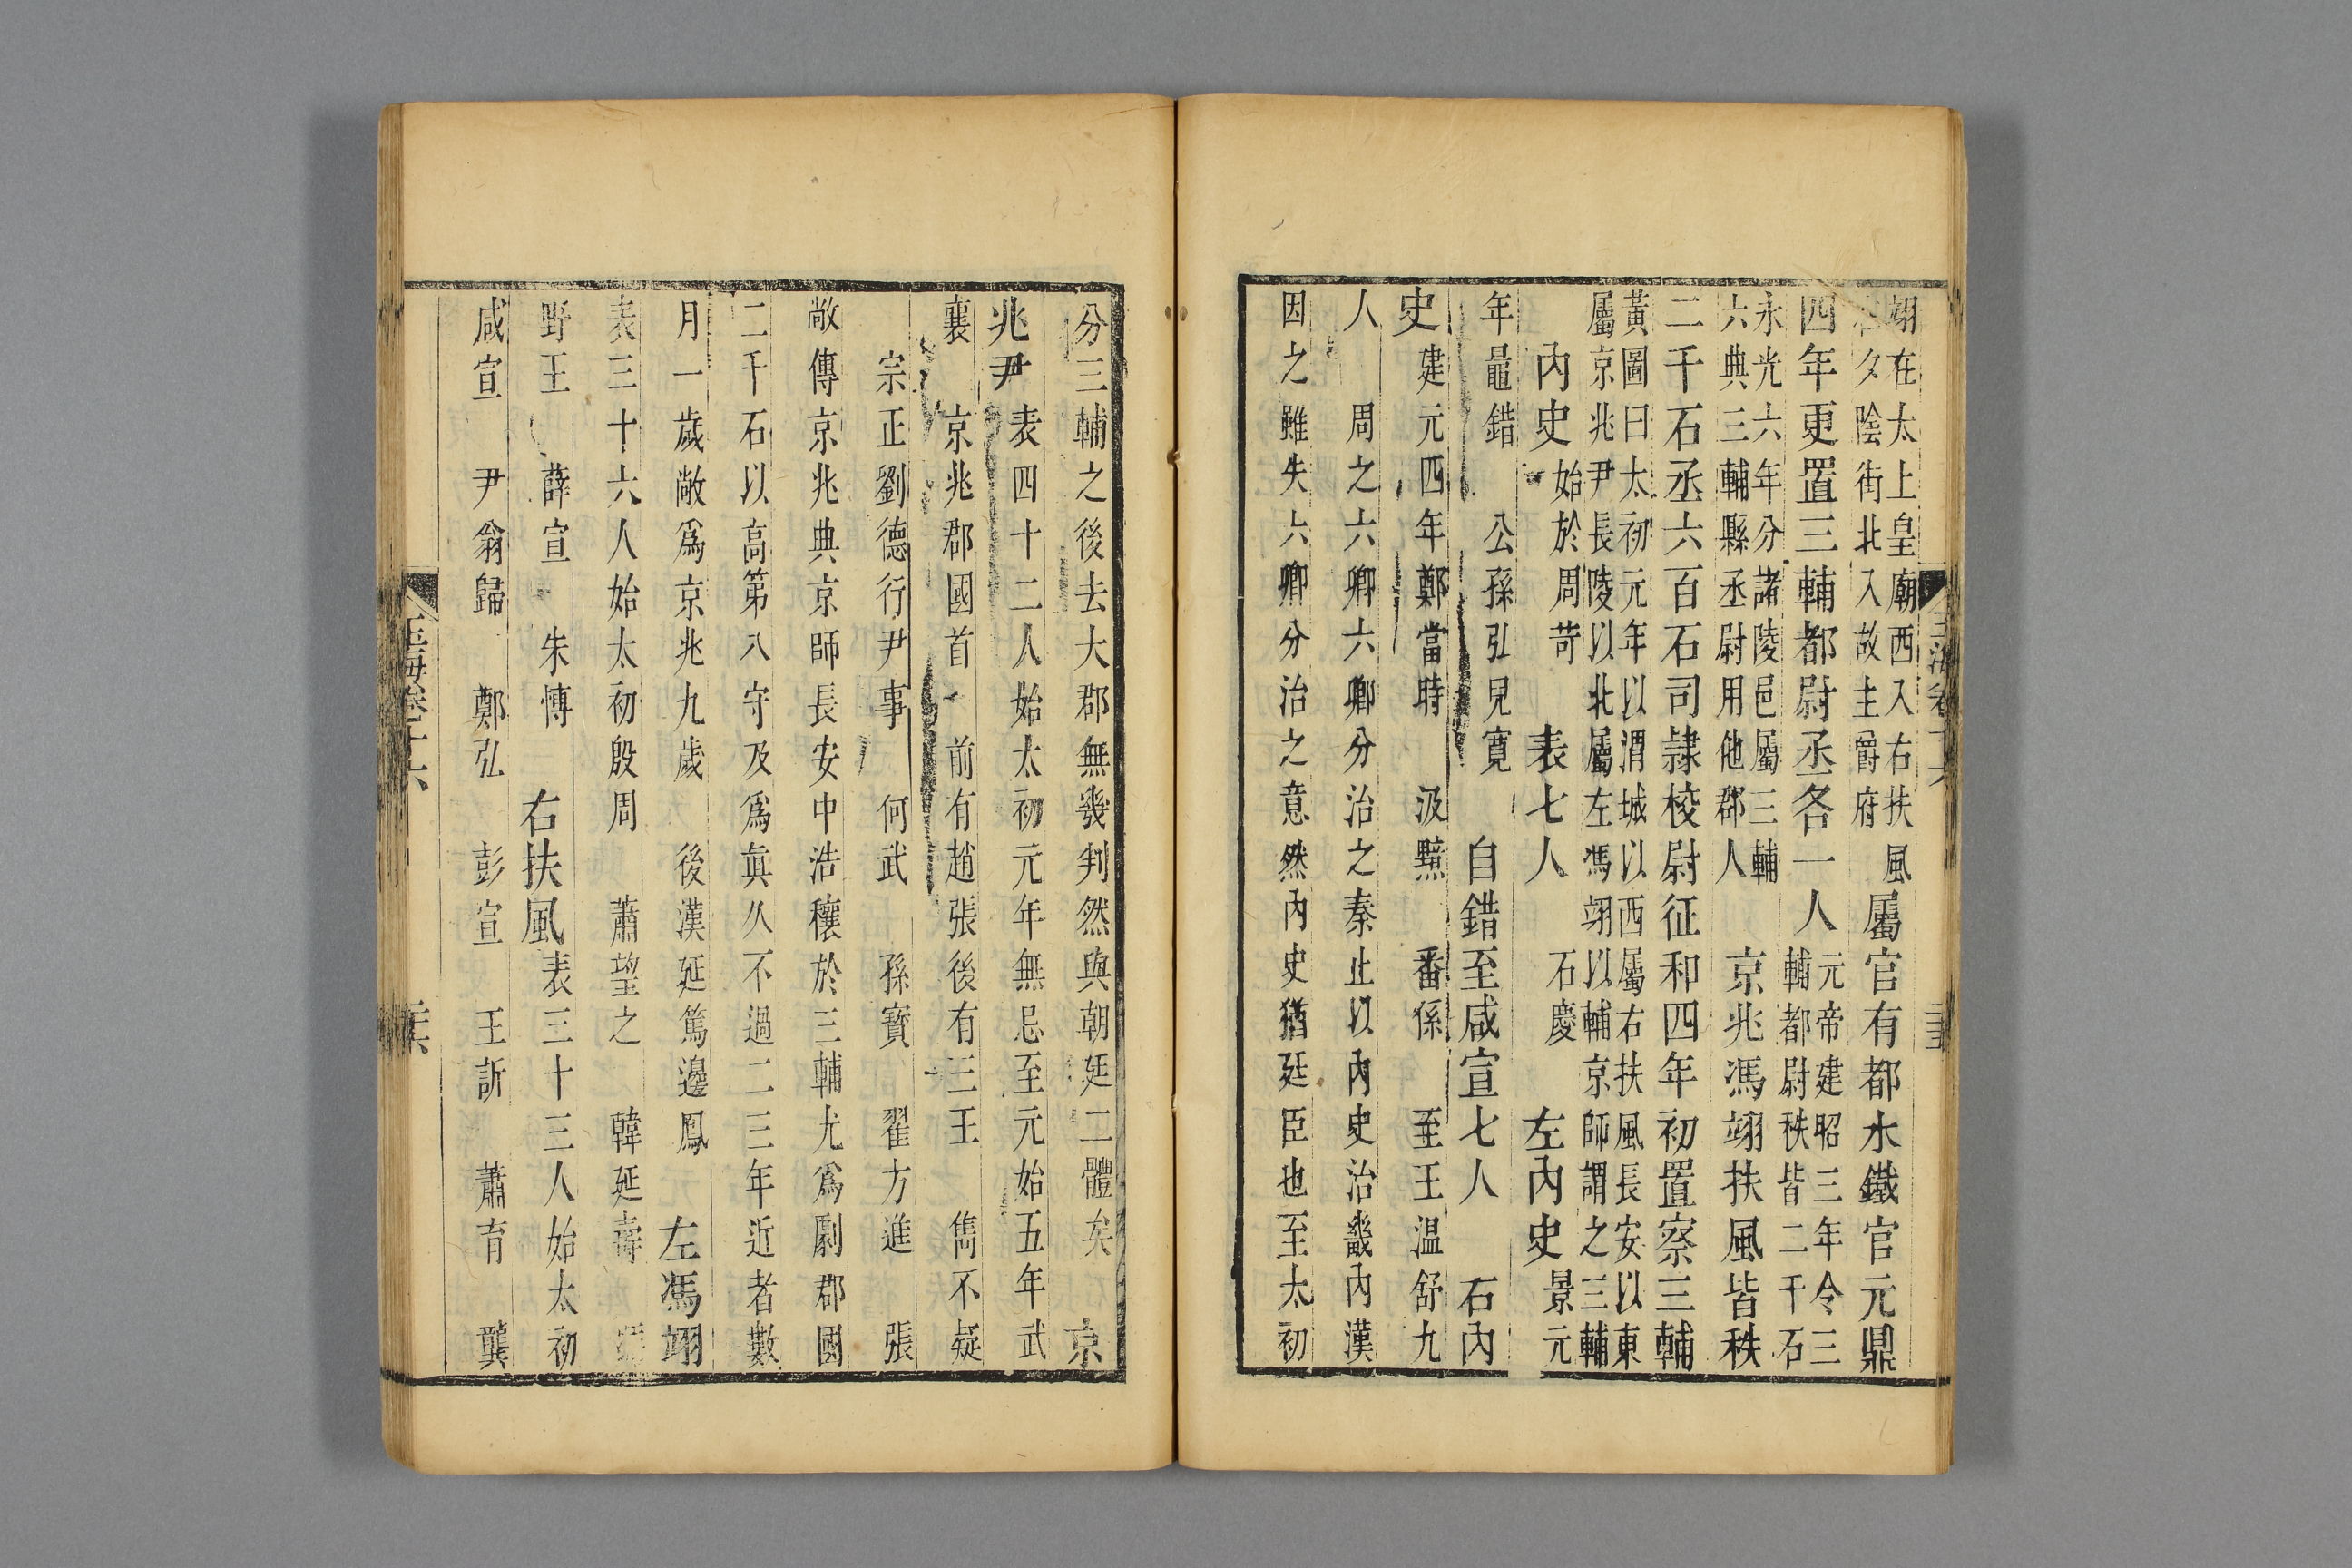 翊在太上皇廟西入右扶風
夕陰街北入故主爵府
屬官有都水鐵官元鼎
四年更置三輔都尉丞各一人
元帝建昭三年令三
輔都尉秩皆二千石
永光六年分諸陵邑屬三輔
六典三輔縣丞尉用他郡人
京兆馮翊扶風皆秩
二千石丞六百石司隷校尉征和四年初置察三輔
黃圖曰太初元年以渭城以西屬右扶風長安以東
屬京兆尹長陵以北屬左馮翊以輔京師謂之三輔
內史 始於周苛 表七人 石慶 左內史 景元
年鼂錯 公孫弘 兒寬 自錯至咸宣七人 右內
史 建元四年鄭當時 汲黯 番係 至王温舒九
人 周之六卿六鄉分治之秦止以內史治畿內漢
因之雖失六卿分治之意然內史猶廷臣也至太初
分三輔之後去大郡無幾判然與朝廷二體矣 京
兆尹 表四十二人始太初元年無忌至元始五年武
襄 京兆郡國首 前有趙張後有三王 雋不疑
宗正劉德行尹事 何武 孫寶 翟方進 張
敞傳京兆典京師長安中浩穰於三輔尤爲劇郡國
二千石以高第入守及爲眞久不過二三年近者數
月一歲敞爲京兆九歲 後漢延篤邊鳳 左馮翊
表三十六人始太初殷周 蕭望之 韓延壽
野王 薛宣 朱愽 右扶風 表三十三人始太初
咸宣 尹翁歸 鄭弘 彭宣 王訢 蕭育 龔
玉海卷 十六